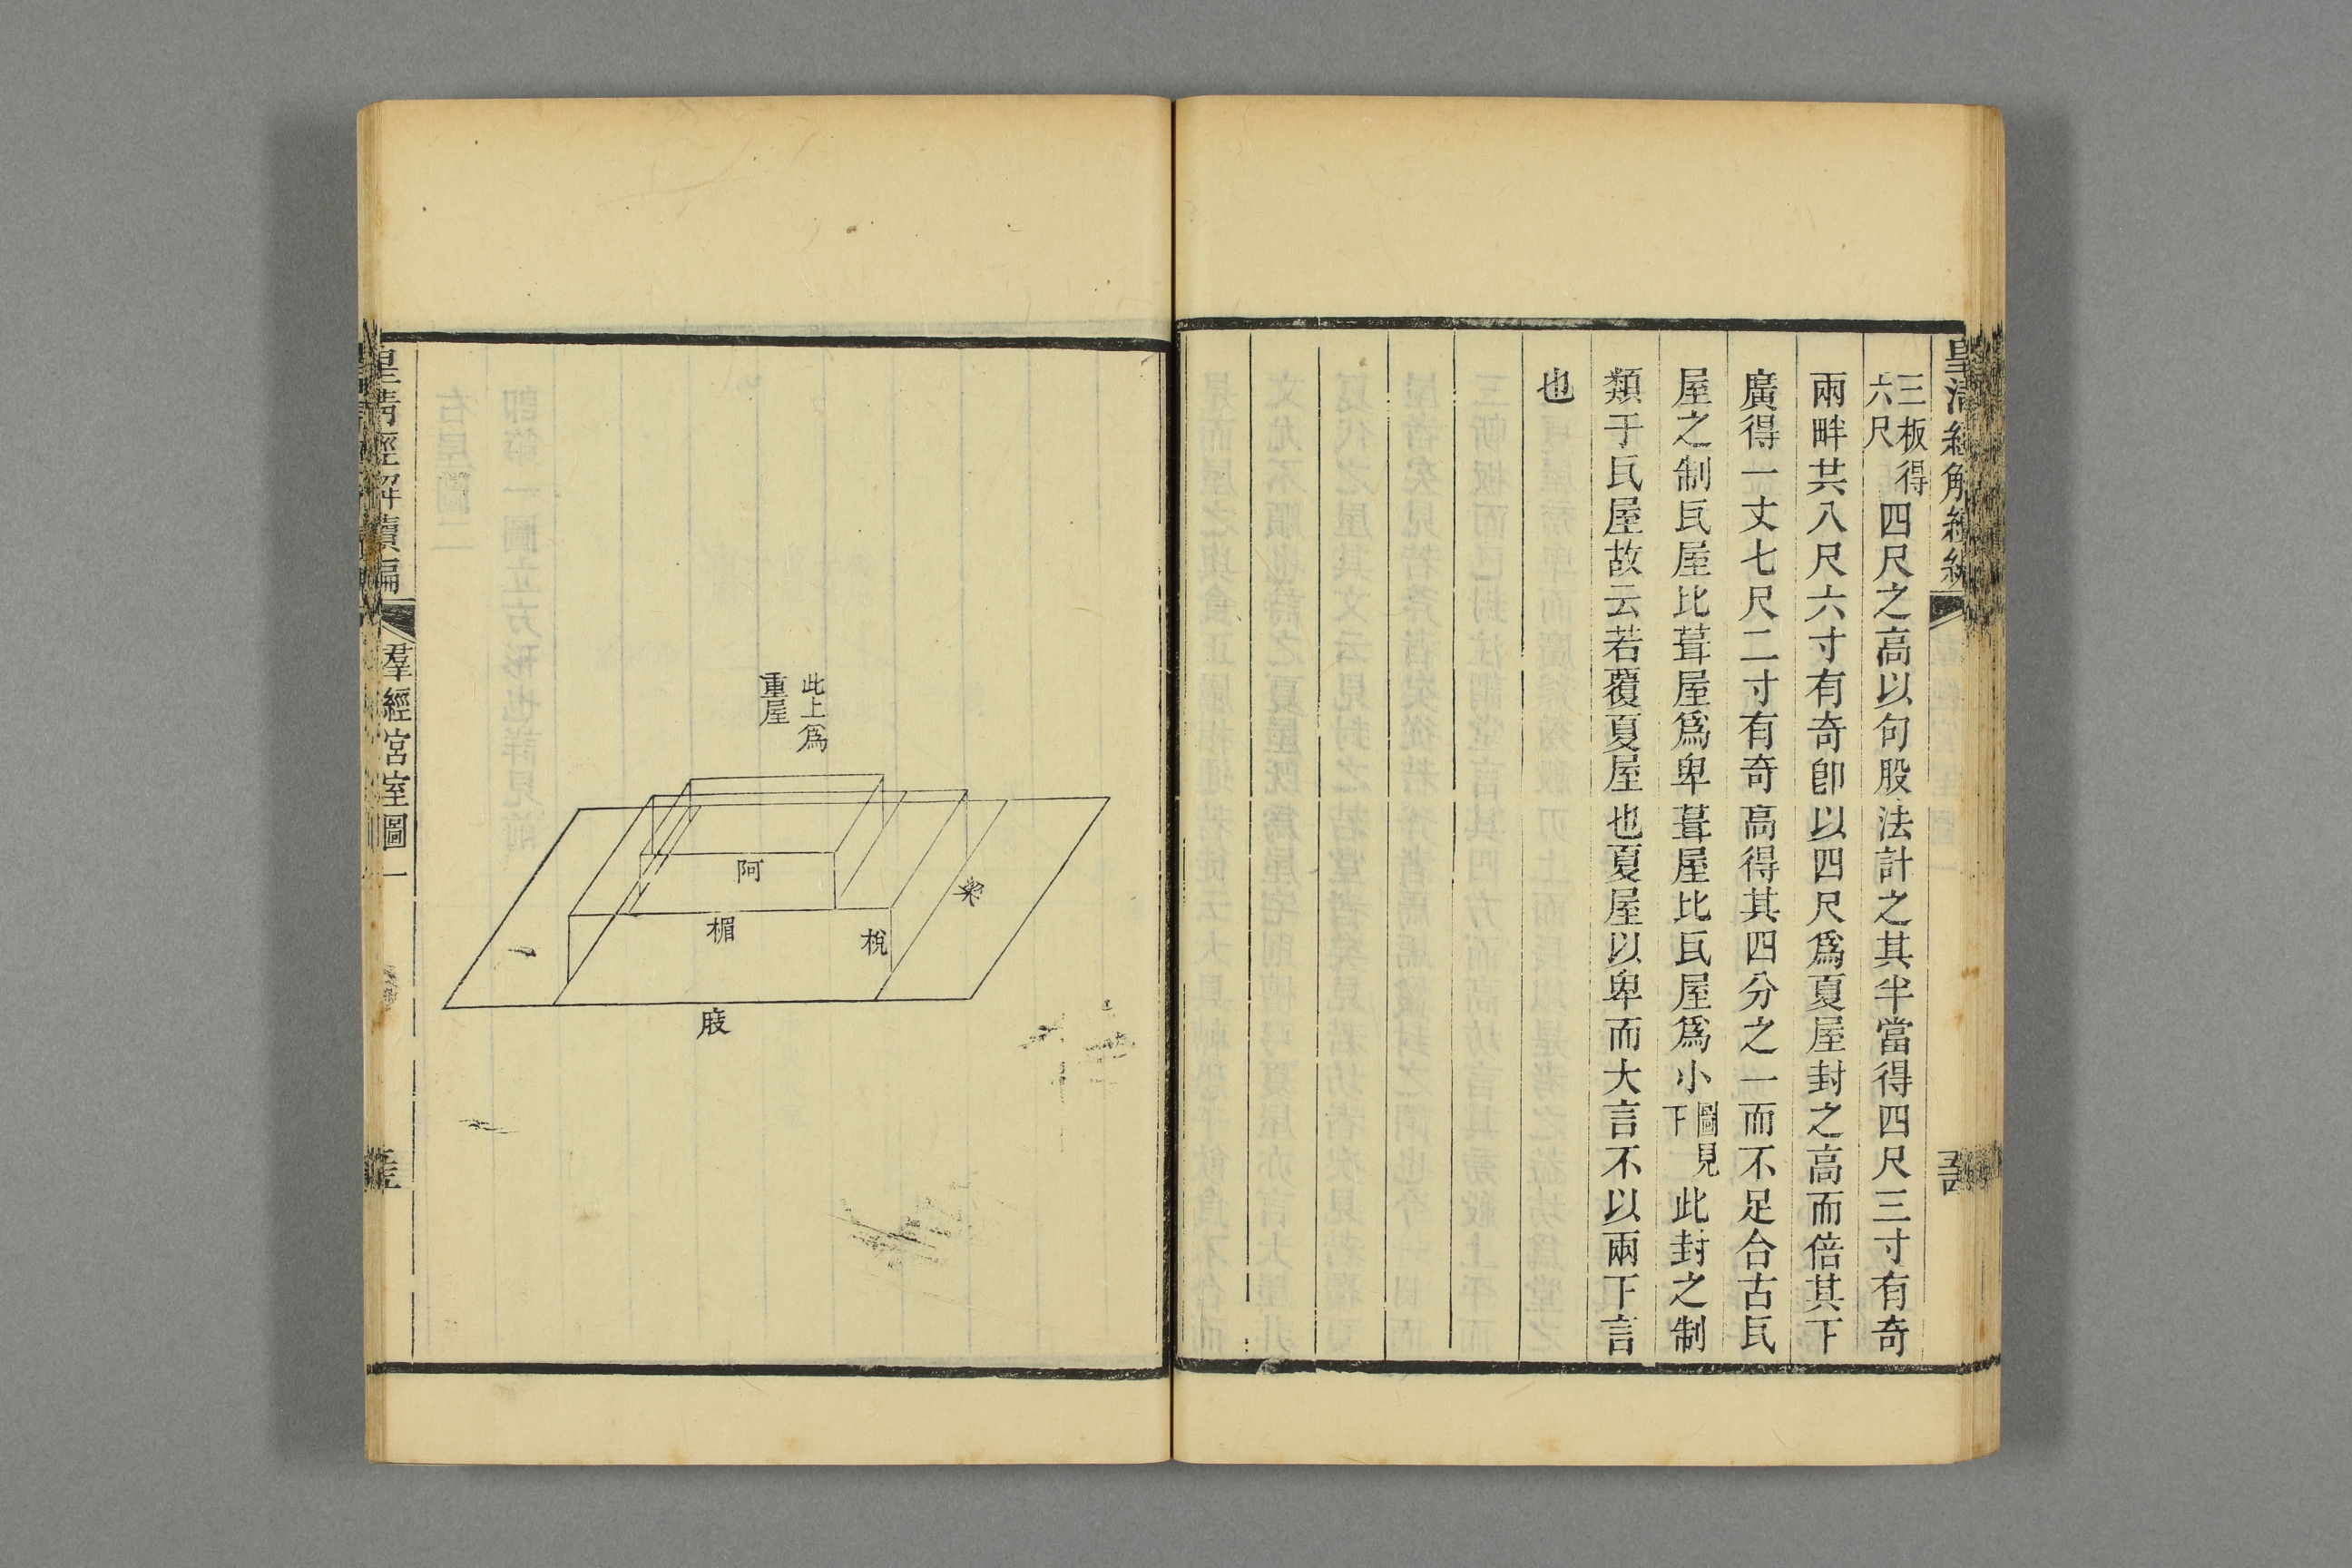 三板得六尺四尺之高以句股法計之其半當得四尺三寸有奇
兩畔共八尺六寸有奇卽以四尺爲夏屋封之高而倍其下
廣得一丈七尺二寸有奇高得其四分之一而不足合古瓦
屋之制瓦屋比葺屋爲卑葺屋比瓦屋爲小圖見下此封之制
類于瓦屋故云若覆夏屋也夏屋以卑而大言不以兩下言
也
此上爲
重屋
阿
楣
梲
梁
庪
皇清經解續編
羣經宮室圖一